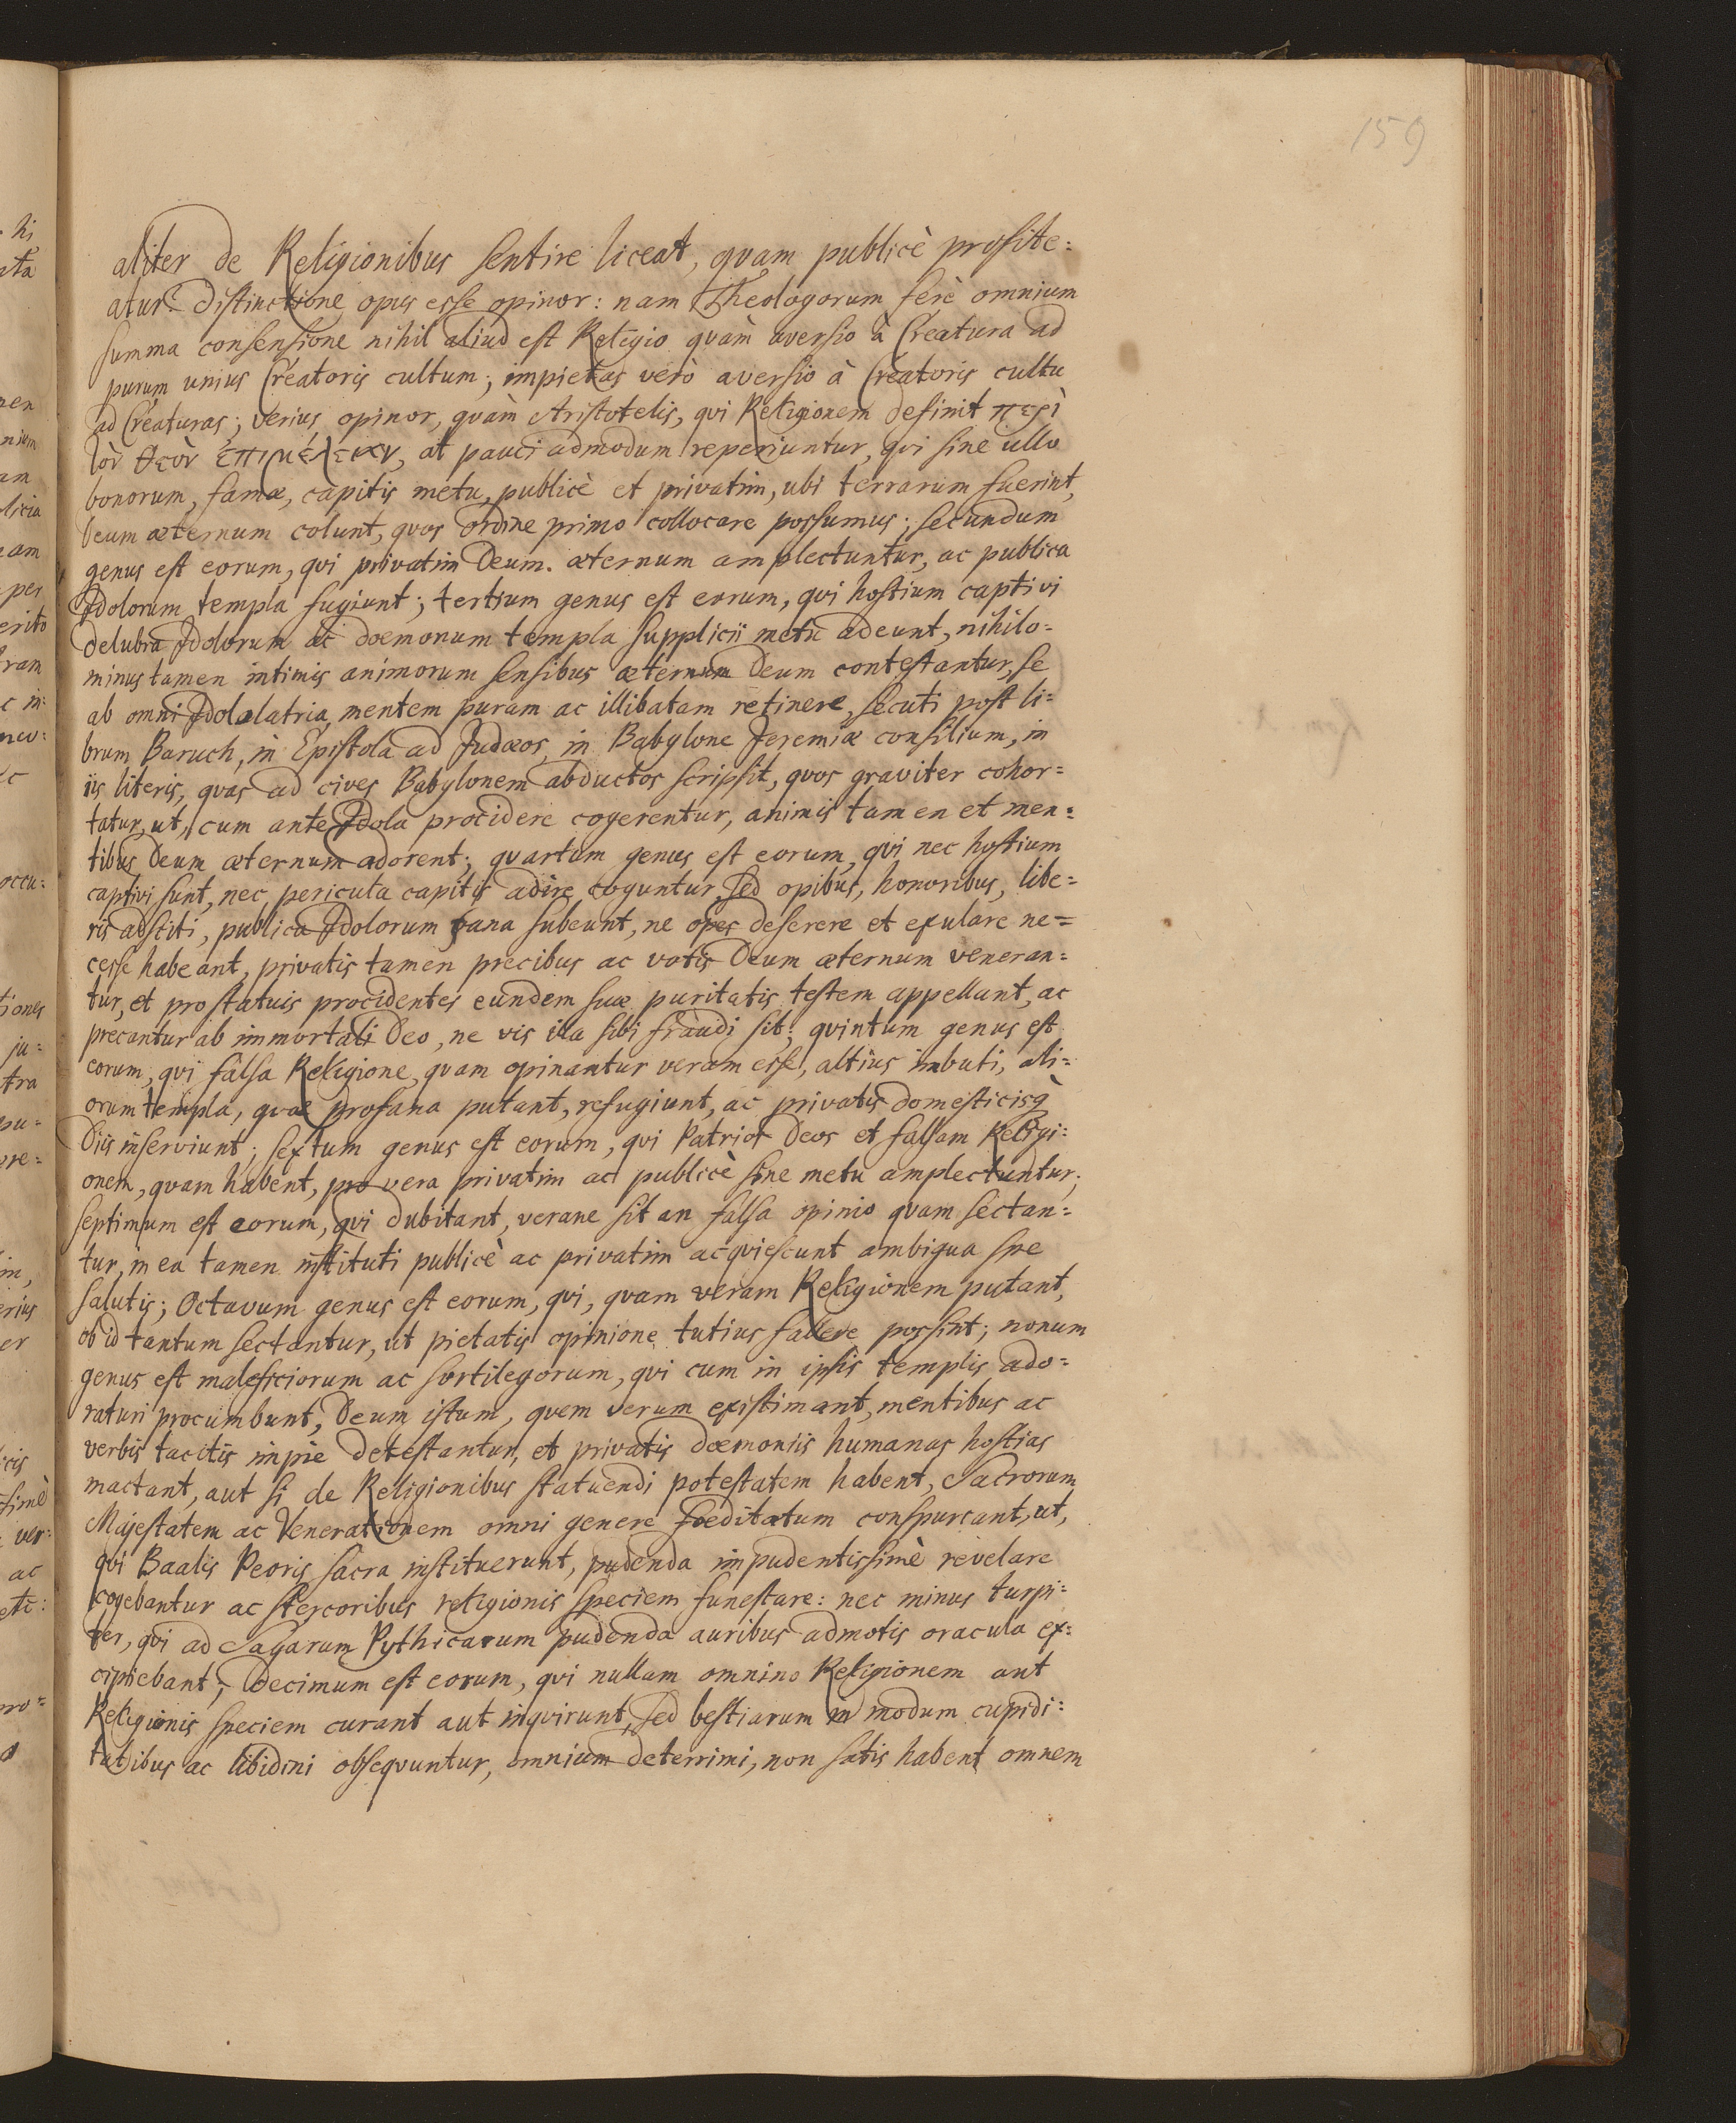 159
aliter de Religionibus sentire liceat, quam publicè profite=
atur? Distinctione opus esse opinor: nam Theologorum ferè omnium
summa consensione nihil aliud est Religio quàm aversio à Creatura ad
purum unius Creatoris cultum; impietas verò aversio à Creatoris cultu
ad Creaturas; verius opinor, quàm Aristotelis, qui Religionem definit περὶ
τὸν θεὸν ἐπιμέλειαν, at pauci admodum reperiuntur, qui sine ullo
bonorum, famæ, capitis metu, publicè et privatim, ubi terrarum fuerint,
Deum æternum colunt, quos ordine primo collocare possumus; secundum
genus est eorum, qui privatim Deum. æternum amplectuntur, ac publica
Idolorum templa fugiunt; tertium genus est eorum, qui hostium captivi
delubra Idolorum ac dæmonum templa supplicii metu adeunt, nihilo=
minus tamen intimis animorum sensibus æternum Deum contestantur, se
ab omni Idololatria, mentem puram ac illibatam retinere, secuti post li=
brum Baruch, in Epistola ad Judæos in Babylone Jeremiæ consilium, in
iis literis, quas ad cives Babylonem abductos scripsit, quos graviter cohor=
tatur, ut, cum ante Idola procidere cogerentur, animis tamen et men=
tibus Deum æternum adorent; quartum genus est eorum, qui nec hostium
captivi sunt, nec pericula capitis adire coguntur, sed opibus, honoribus, libe=
ris adsciti, publica Idolorum fana subeunt, ne opes deserere et exulare ne=
cesse habeant, privatis tamen precibus ac votis Deum æternum veneran=
tur, et pro statuis procidentes eundem suæ puritatis testem appellant, ac
precantur ab immortali Deo, ne vis illa sibi fraudi sit; quintum genus est
eorum, qui falsa Religione, quam opinantur veram esse, altius imbuti, ali=
orum templa, quæ profana putant, refugiunt, ac privatis domesticisq
Diis inserviunt; sextum genus est eorum, qui Patrios Deos et falsam Religi=
onem, quam habent, pro vera privatim ac publicè sine metu amplectuntur;
septimum est eorum, qui dubitant, verane sit an falsa opinio quam sectan=
tur, in ea tamen instituti publicè ac privatim acquiescunt ambigua spe
salutis; Octavum genus est eorum, qui, quam veram Religionem putant,
ob id tantum sectantur, ut pietatis opinione tutius fallere possint; nonum
genus est maleficiorum ac sortilegorum, qui cum in ipsis templis ado=
raturi procumbunt, Deum istum, quem verum existimant, mentibus ac
verbis tacitis impie detestantur, et privatis dæmoniis humanas hostias
mactant, aut si de Religionibus statuendi potestatem habent, Sacrorum
Majestatem ac Venerationem omni genere foeditatum conspurcant, ut,
qui Baalis Peoris sacra instituerunt, pudenda impudentissimè revelare
cogebantur ac stercoribus religionis speciem funestare: nec minus turpi=
ter, qui ad Sagarum Pythicarum pudenda auribus admotis oracula ex=
cipiebant; Decimum est eorum, qui nullam omnino Religionem aut
Religionis speciem curant aut inquirunt, sed bestiarum in modum cupidi=
tatibus ac libidini obsequuntur, omnium deterrimi, non satis habent omnem